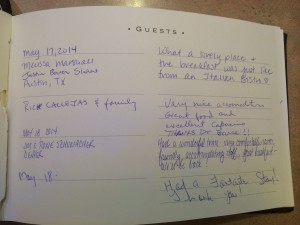 GUESTS
May 17, 2014
Melissa Marshall
Austin, TX
What a lovely place +
the breakfast was just like
from an Italian Bistro!
Rick Callejas & family
Very nice accomodations
Great food and
excellent Capuccino
Thanks Dr.
2014
Had a wonderful time - very comfortable room,
friendly, accommodating staff, great breakfast -
to back!
May 18 -
Had a Fantastic Stay!
Thank you!